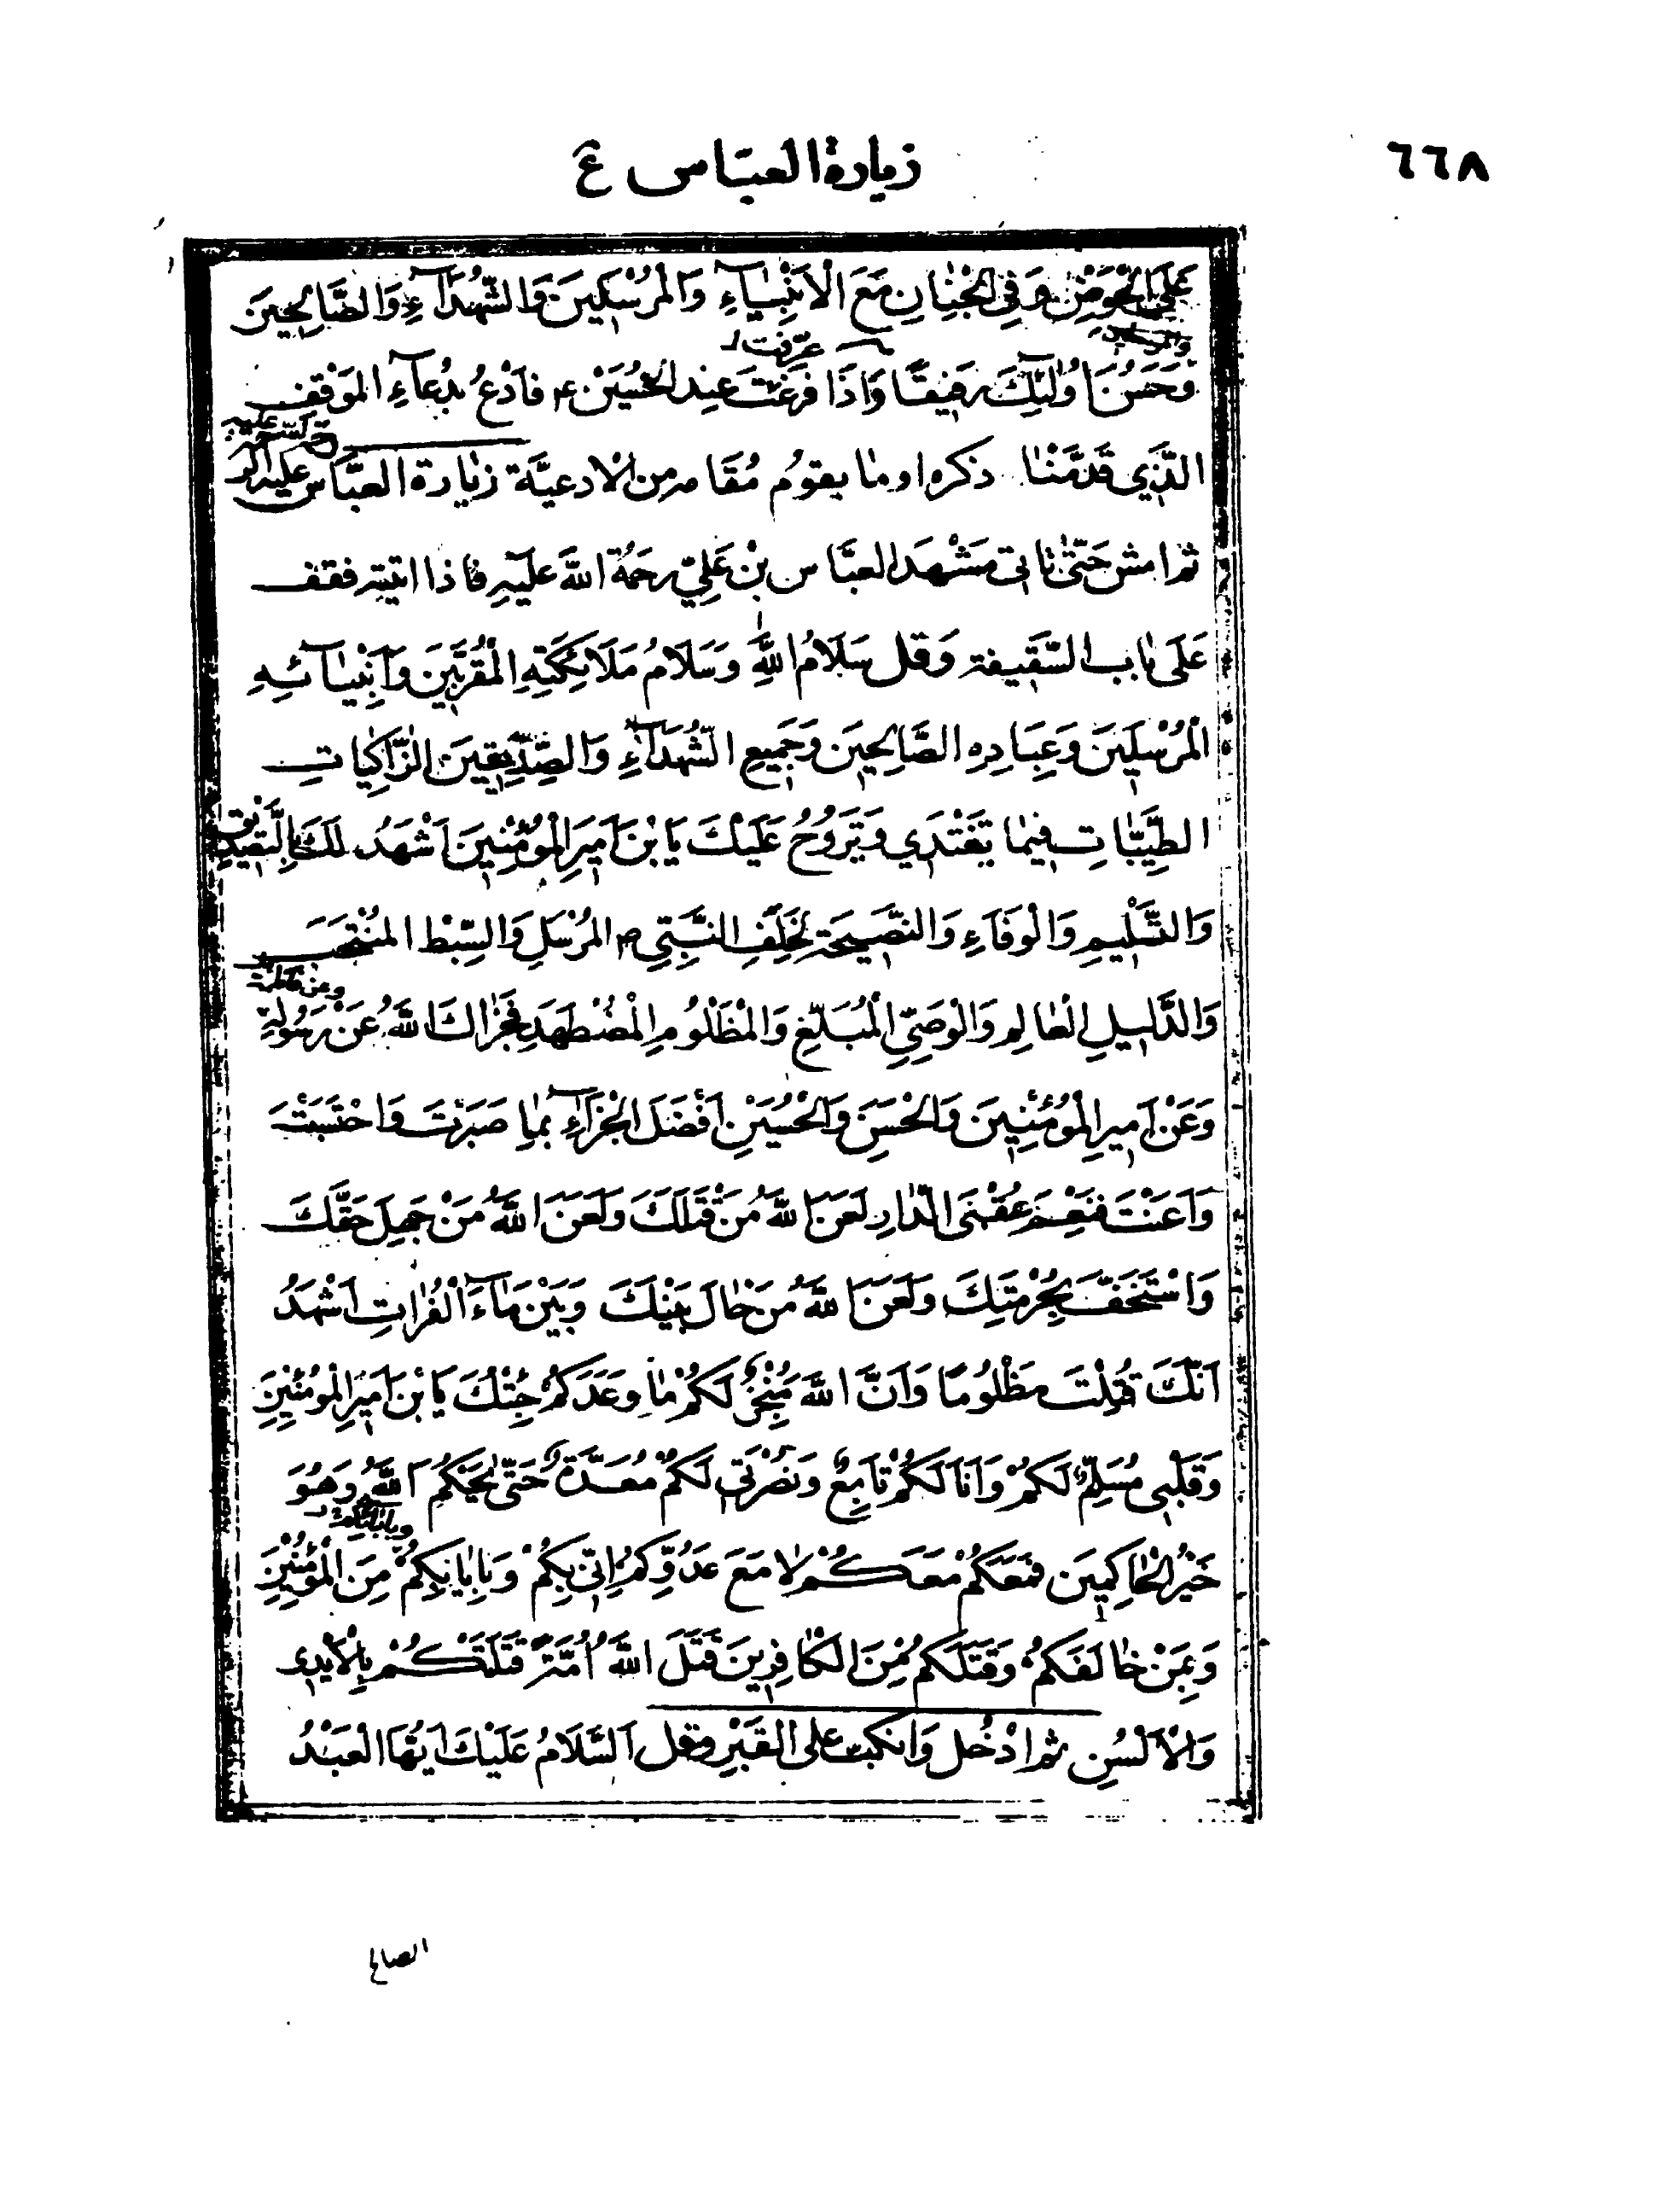 ٦٦٨
زيارة العبّاس ع
عَلَى الْحَوْضِ وَفِي الْجِنٰانِ مَعَ الْاَنْبِيٰاءِ وَالْمُرْسَلِينَ وَالشُّهَدٰآءِ وَالصّٰالِحِينَ
وَحَسُنَ اُولٰئِكَ رَفِيقًا وَاِذَا فَرَغْتَ عِندَ الْحُسَيْنِ ع فَادْعُ بِدُعآءِ الْمَوْقِفِ
الَّذِي قَدَّمْنٰا ذكره او مٰا يقومُ مُقَامه من الْادعيَّة زيٰارة العبَّاس
ثم امش حَتّٰى تٰاتى مَشْهَدَ العبَّاس بْن عَلِيّ رحمَةُ اللَّهِ عليَهِ فاذا اتيته فقف
عَلَى بٰاب السَّقِيفة وَقل سَلَامُ اللَّهِ وَسَلَامُ مَلَائِكَتِهِ الْمُقَرَّبِينَ وَاَنْبِيٰآئِهِ
الْمُرْسَلِينَ وَعِبَادِهِ الصَّالِحِينَ وَجَمِيعِ الشُّهَدَآءِ وَالصِّدِّيقِينَ الزّٰاكِيٰاتِ
الطَّيِّبٰاتِ فِيمٰا تَغْتَدِي وَتَرُوحُ عَلَيْكَ يَا بْنَ اَمِيرِ الْمُؤْمِنِينَ اَشْهَدُ لَكَ بِالتَّصْدِيقِ
وَالتَّسْلِيمِ وَالْوَفَاءِ وَالنَّصِيحَةِ لِخَلَفِ النَّبِيِّ ص الْمُرْسَلِ وَالسِّبْطِ الْمُنْتَجَبِ
وعن فاطمة
وَالدَّلِيلِ الْعٰالِمِ وَالْوَصِيِّ الْمُبَلِّغِ وَالْمَظْلُومِ الْمُضْطَهَدِ فَجَزٰاكَ اللَّهُ عَنْ رَسُولِهِ
وَعَنْ اَمِيرِ الْمُؤْمِنِينَ وَالْحَسَنِ وَالْحُسَيْنِ اَفْضَلَ الْجَزَآءِ بِمٰا صَبَرْتَ وَاحْتَسَبْتَ
وَاَعَنْتَ فَنِعْمَ عُقْبَى الدّٰارِ لَعَنَ اللَّهُ مَنْ قَتَلَكَ وَلَعَنَ اللَّهُ مَنْ جَهِلَ حَقَّكَ
وَاسْتَخَفَّ بِحُرْمَتِكَ وَلَعَنَ اللَّهُ مَنْ حٰالَ بَيْنَكَ وَبَيْنَ مٰاءِ الْفُرٰاتِ اَشْهَدُ
اَنَّكَ قُتِلْتَ مَظْلُومًا وَاَنَّ اللَّهَ مُنْجِزٌ لَكُمْ مٰا وَعَدَكُمْ جِئْتُكَ يَا بْنَ اَمِيرِ الْمُؤْمِنِينَ
وَقَلْبِي مُسَلِّمٌ لَكُمْ وَاَنَا لَكُمْ تَابِعٌ وَنُصْرَتِي لَكُمْ مُعَدَّةٌ حَتّٰى يَحْكُمَ اللَّهُ وَهُوَ
خَيْرُ الْحٰاكِمِينَ فَمَعَكُمْ مَعَكُمْ لٰا مَعَ عَدُوِّكُمْ اِنِّي بِكُمْ وَبِاِيٰابِكُمْ مِنَ الْمُؤْمِنِينَ
وَبِمَنْ خٰالَفَكُمْ وَقَتَلَكُمْ مِنَ الْكٰافِرِينَ قَتَلَ اللَّهُ اُمَّةً قَتَلَتْكُمْ بِالْاَيْدِي
وَالْاَلْسُنِ ثم ادْخُل وَانكبّ على القَبْرِ وقل اَلسَّلَامُ عَلَيْكَ اَيُّهَا الْعَبْدُ
الصالح